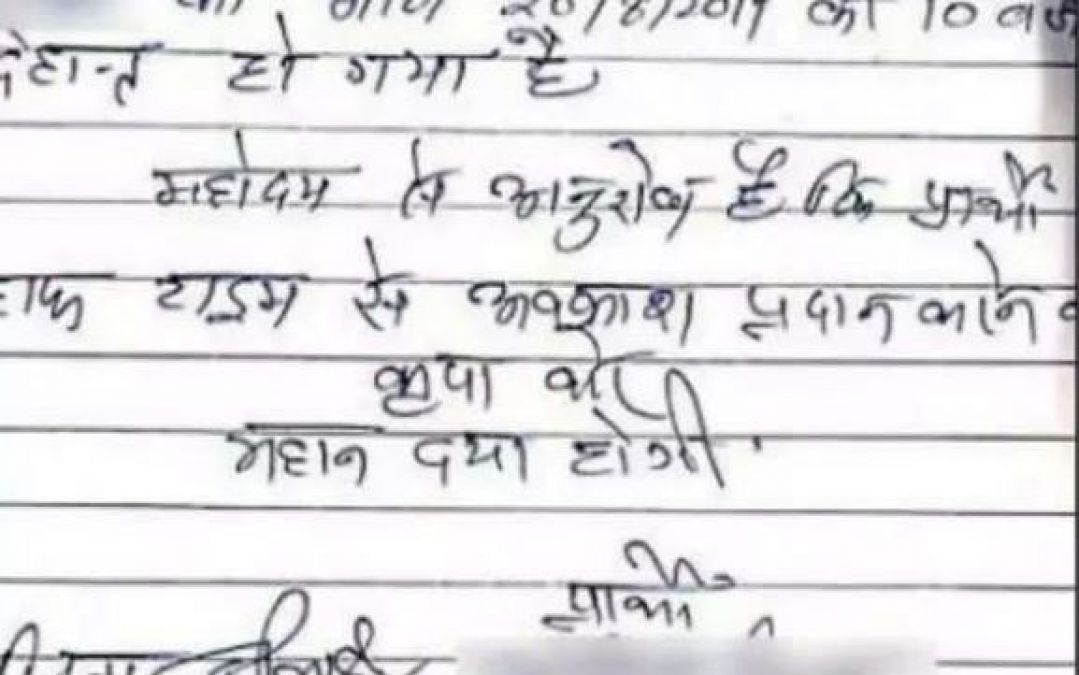 20/8/2019 को 10 बजे
देहान्त हो गया है
महोदय से अनुरोध है कि प्रार्थी
हाफ टाइम से अवकाश प्रदान करने
कृपा करें
महान दया होगी.
प्रार्थी